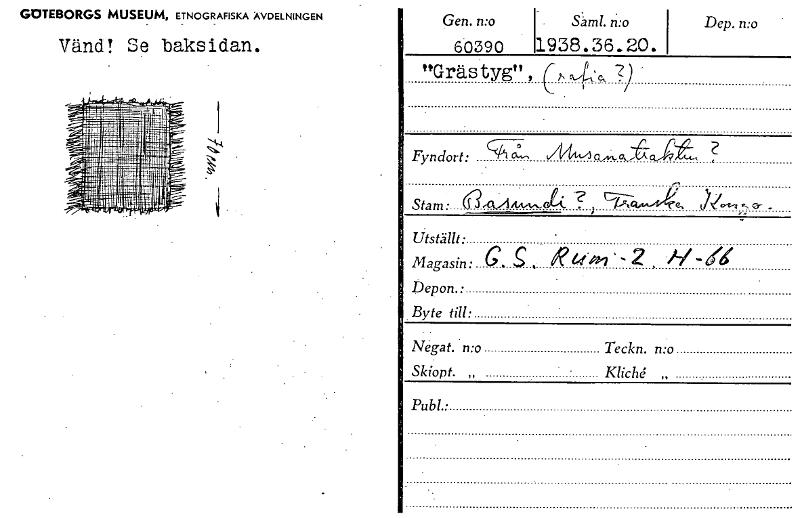 GÖTEBORGS MUSEUM, ETNOGRAFISKA AVDELNINGEN
Vänd! Se baksidan.
70 cm.
Gen. n:o Saml. n:o Dep. n:o
60390 1938.36.20.
"Grästyg", (rafia?)
Fyndort: Från Musanatrakten?
Stam: Basundi?, Franska Kongo.
Utställt:
Magasin: G.S. Rum-2 H-66
Depon.:
Byte till:
Negat. n:o Teckn. n:o
Skiopt. „ Kliché „
Publ.: